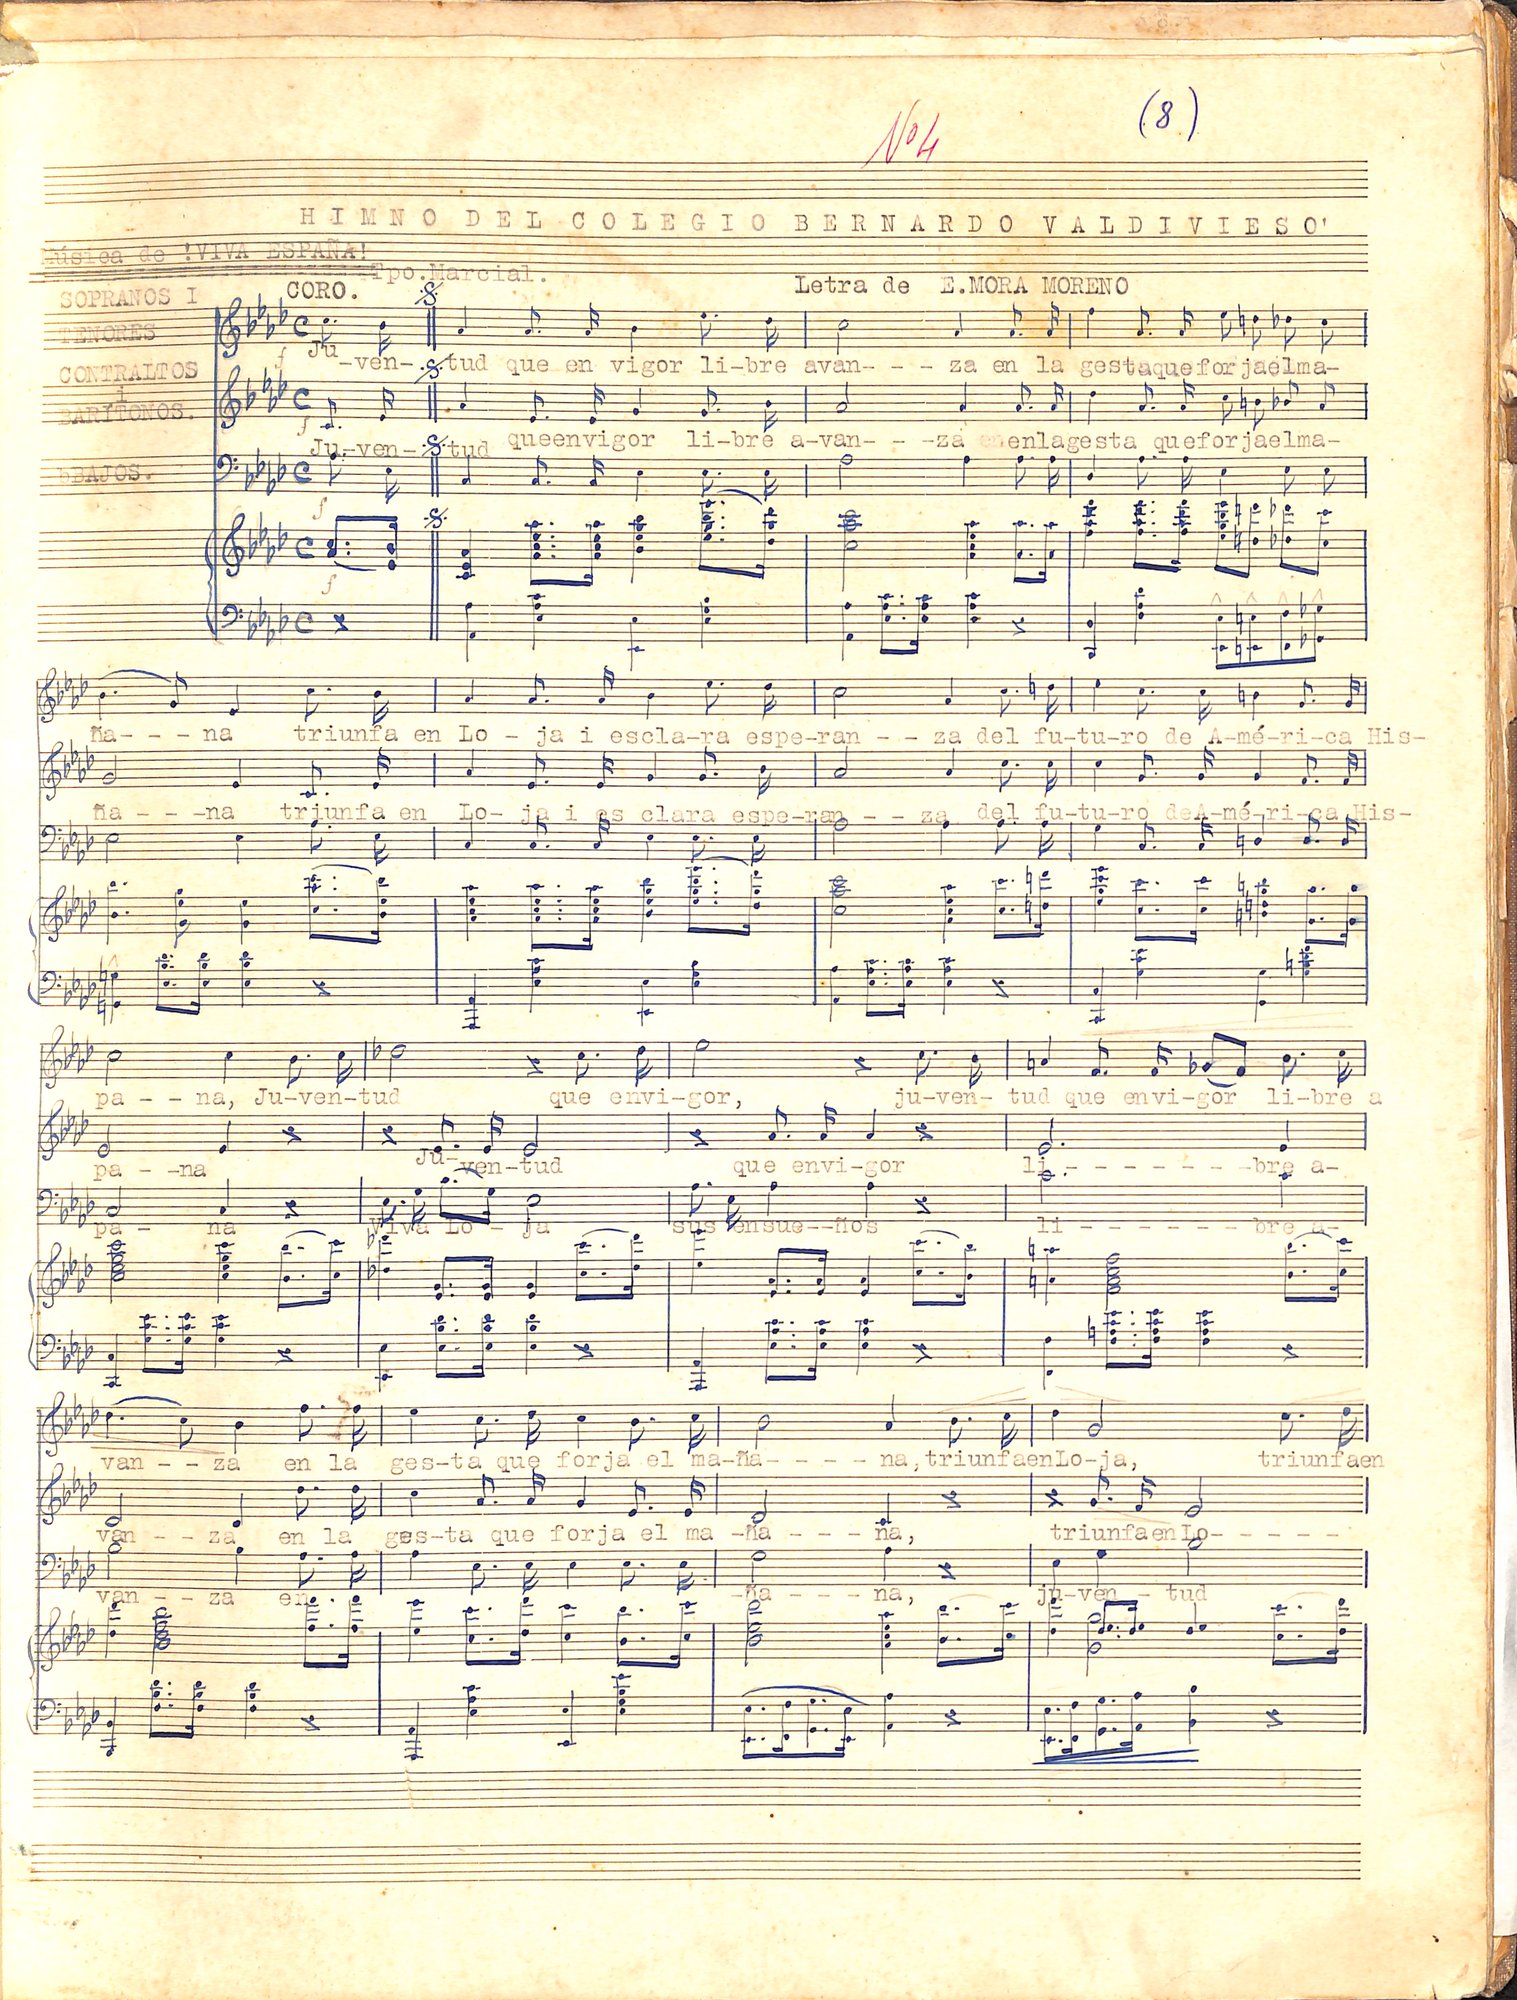 (8)
Nº4
HIMNO DEL COLEGIO BERNARDO VALDIVIESO'
Música de !VIVA ESPAÑA!
Tpo.Marcial.
CORO.
Letra de E.MORA MORENO
SOPRANOS I
TENORES
Ju-ven- tud que en vigor li-bre avan- - - za en la gestaqueforjaelma-
CONTRALTOS
i
BARITONOS.
Ju-ven- tud queenvigor li-bre a-van- - -za enlagesta queforjaelma-
BAJOS.
f
f
f
f
ña- - - na triunfa en Lo - ja i escla-ra espe-ran - - za del fu-tu-ro de A-mé-ri-ca His-
ña- - -na triunfa en Lo- ja i es clara espe-ran - - za del fu-tu-ro deA-mé-ri-ca His-
pa - - na, Ju-ven-tud que envi-gor, ju-ven- tud que envi-gor li-bre a
pa - -na Ju-ven-tud que envi-gor li - - - - - - - -bre a-
pa - na Viva Lo - ja sus ensue--ños li - - - - - - - bre a-
van - - za en la ges-ta que forja el ma-ña- - - - na,triunfaenLo-ja, triunfaen
van - - za en la ges-ta que forja el ma -ña - - - na, triunfaenLo- - - - -
van - - za en -ña - - - na, ju-ven - tud